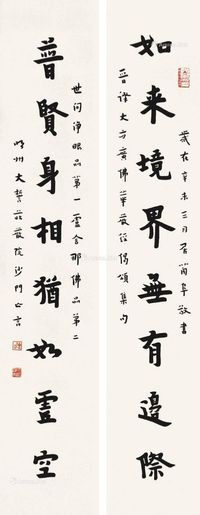 歲在辛未三月居阜敬書
如来境界無有邊際
晉譯大方廣佛華嚴經偈頌集句
世间淨眼品第一盧舍那佛品第二
普賢身相猶如虛空
明州大誓莊嚴院沙門亡言